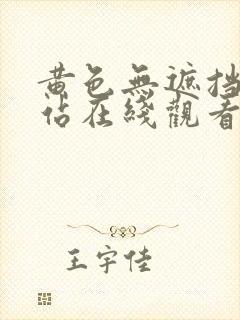 黄色無遮挡
佔在綫觀看
王宇佳